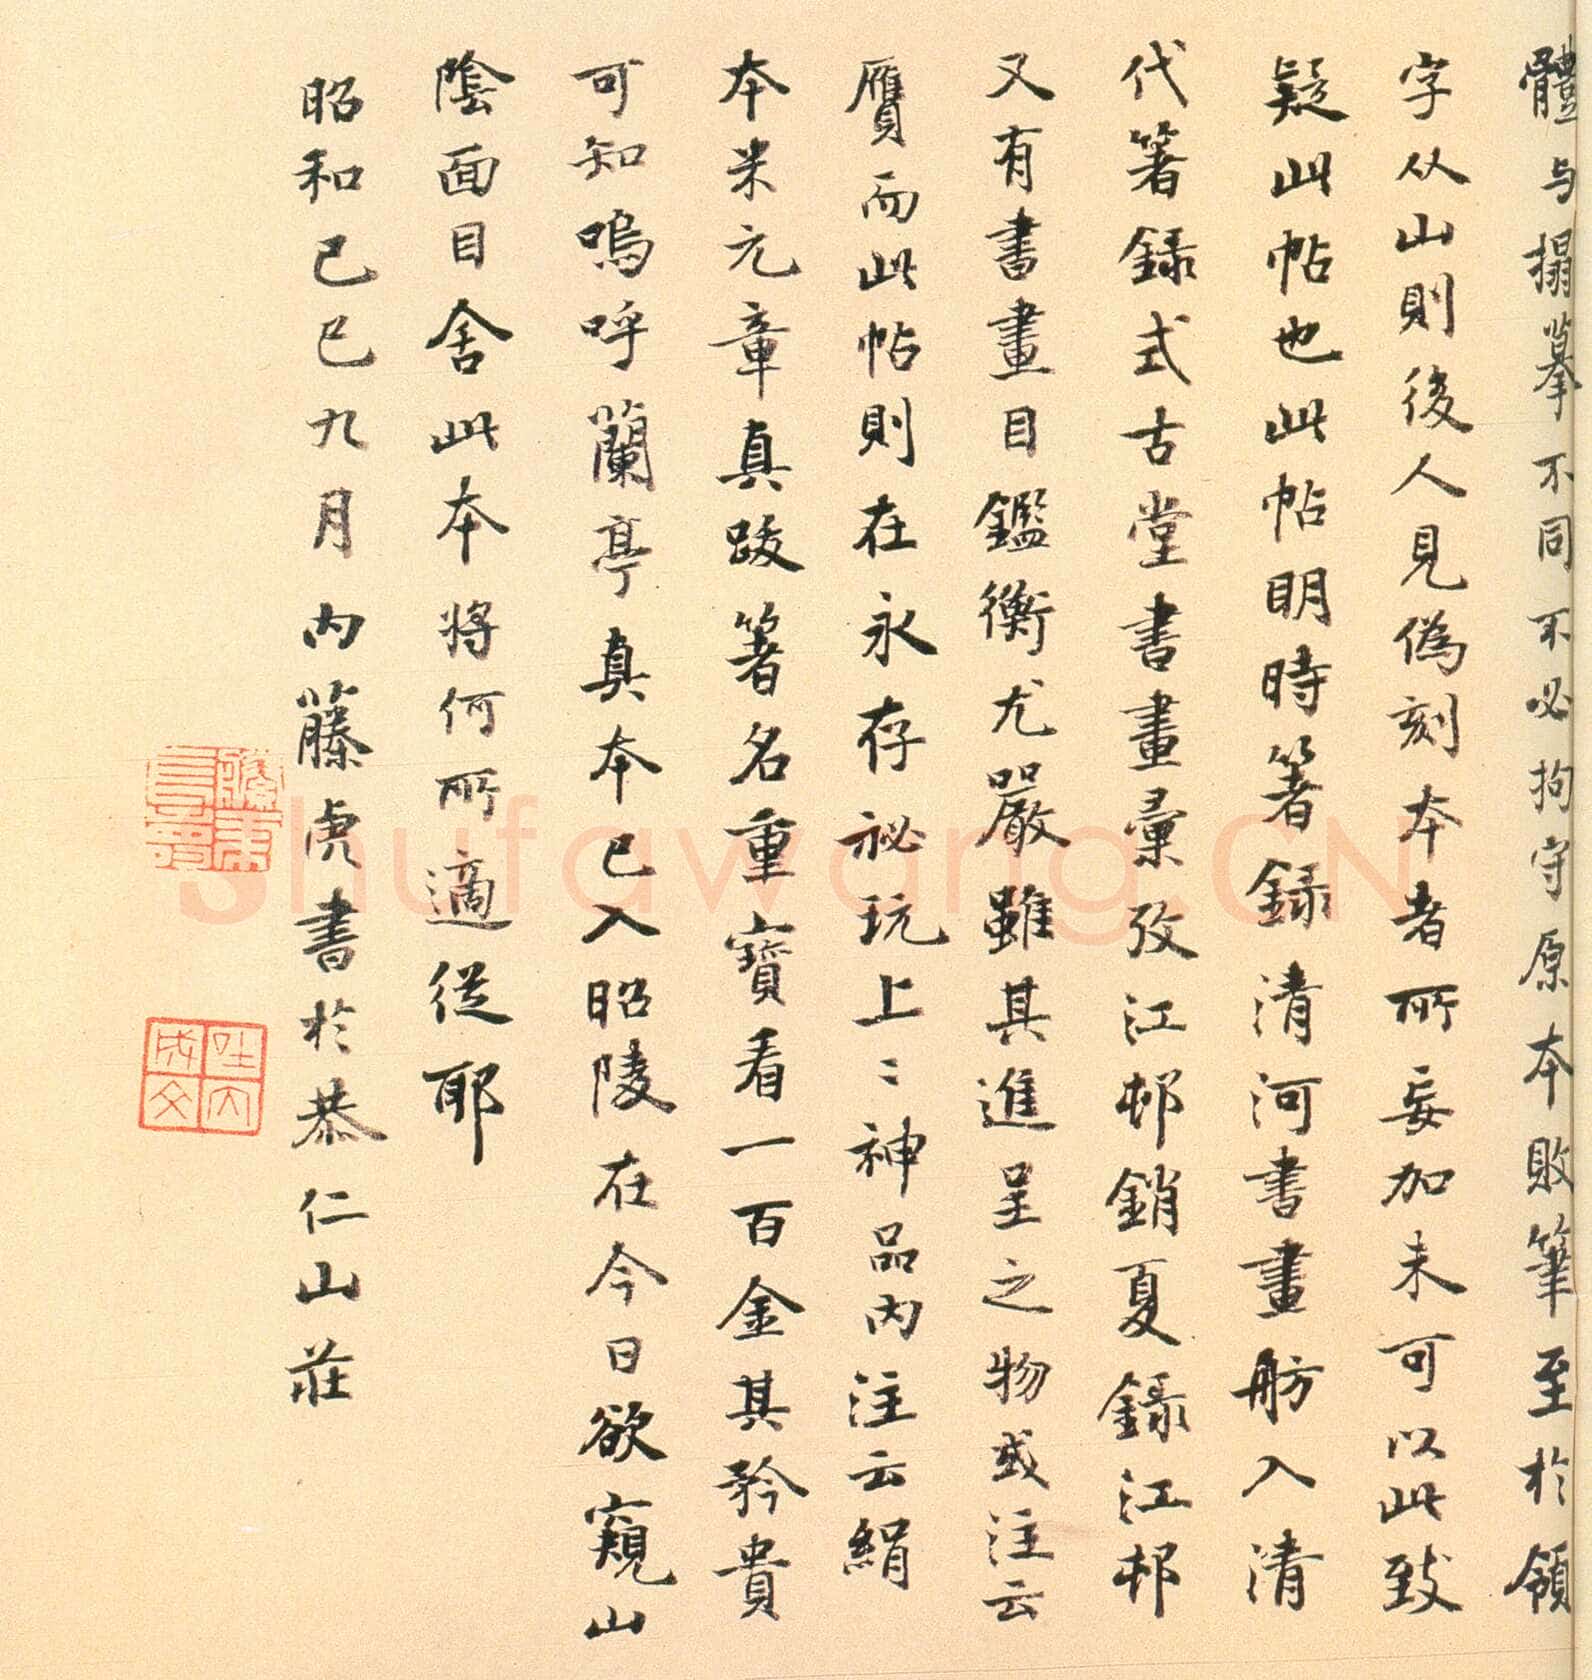 體与搨摹不同不必拘守原本敗筆至於領
字从山則後人見僞刻本者所妄加未可以此致
疑此帖也此帖明時箸錄清河書畫舫入清
代箸錄式古堂書畫彙攷江邨銷夏錄江邨
又有書畫目鑑衡尤嚴雖其進呈之物或注云
贋而此帖則在永存祕玩上上神品內注云絹
本米元章真跋箸名重寶看一百金其矜貴
可知嗚呼蘭亭真本已入昭陵在今日欲窺山
陰面目舍此本將何所適從耶
昭和己巳九月內藤虎書於恭仁山莊
shufawang.CN